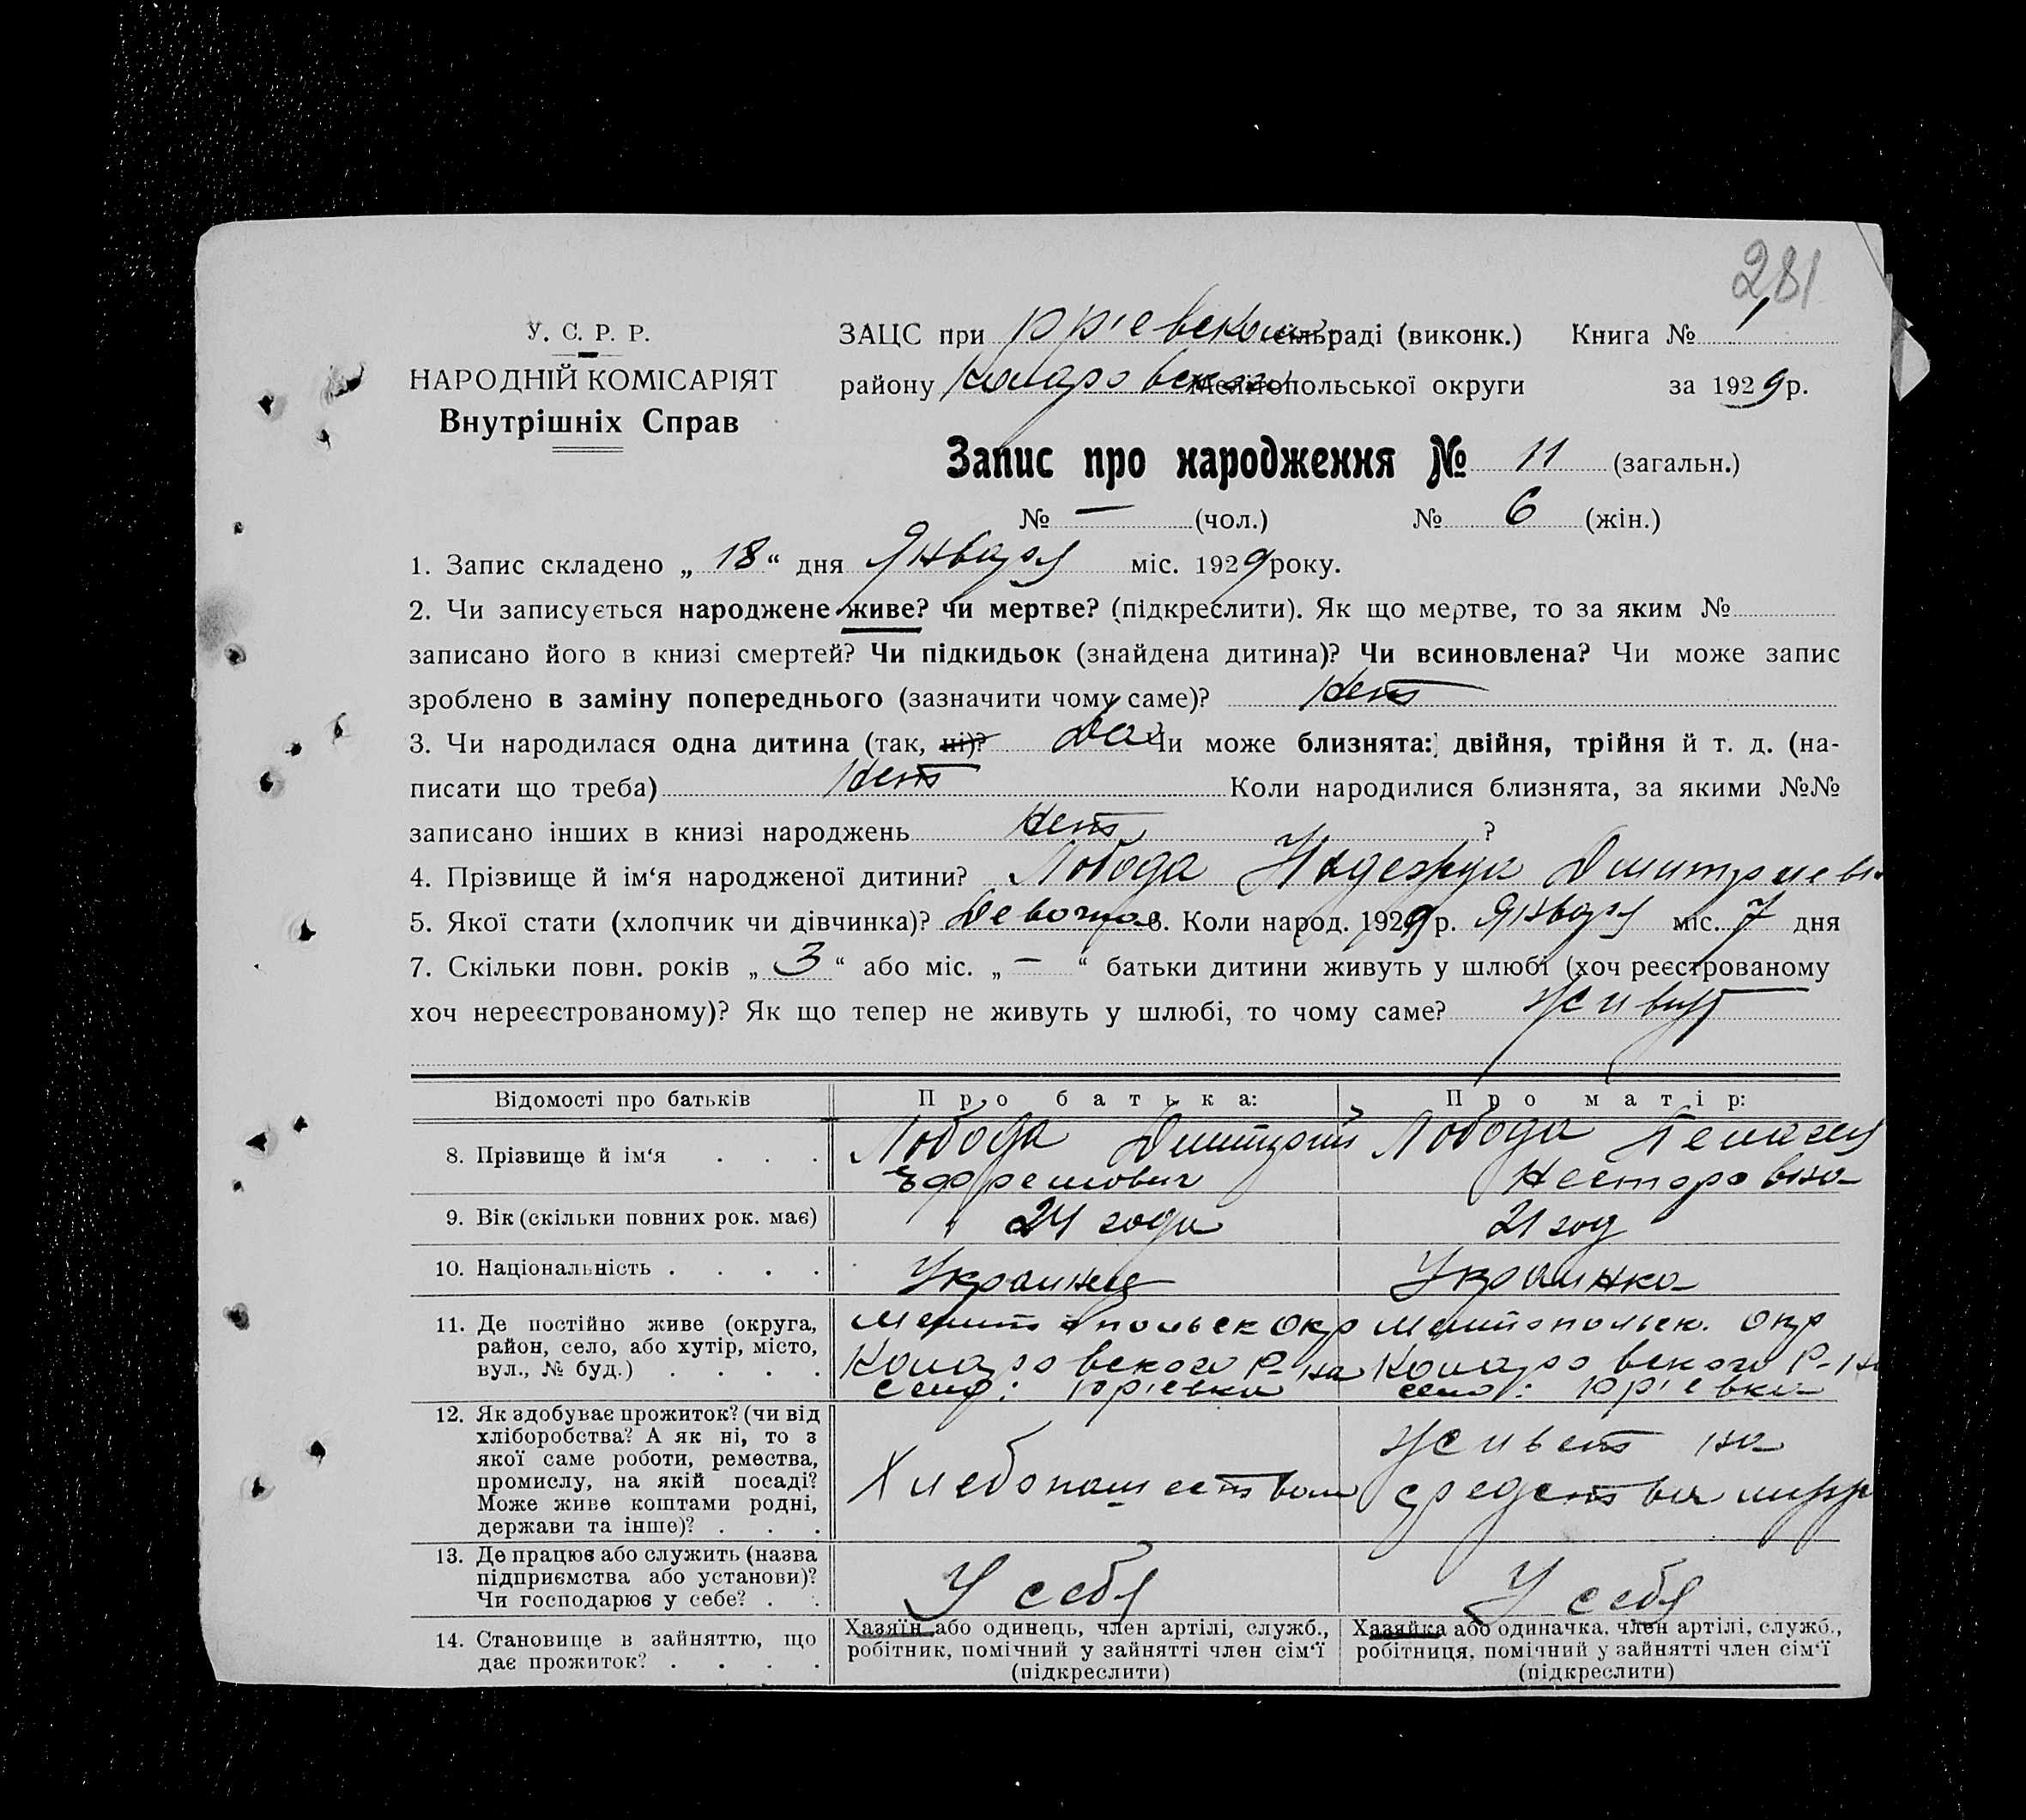 281
У. С. Р. Р.
НАРОДНІЙ КОМІСАРІЯТ
Внутрішніх Справ
ЗАЦС при Юріевском сільраді (виконк.) Книга № 1
району Комаровского Мелітопольської округи за 1929 р.
Запис про народження № 11 (загальн.)
№ — (чол.) № 6 (жін.)
1. Запис складено „ 18 “ дня Января міс. 1929 року.
2. Чи записується народжене живе? чи мертве? (підкреслити). Як що мертве, то за яким №
записано його в книзі смертей? Чи підкидьок (знайдена дитина)? Чи всиновлена? Чи може запис
зроблено в заміну попереднього (зазначити чому саме)? Нет
3. Чи народилася одна дитина (так, ні)? Да Чи може близнята: двійня, трійня й т. д. (на-
писати що треба) Нет Коли народилися близнята, за якими №№
записано інших в книзі народжень Нет ?
4. Прізвище й ім‘я народженої дитини? Лобода Надежда Дмитриев
5. Якої стати (хлопчик чи дівчинка)? Девочка 6. Коли народ. 1929 р. Января міс. 7 дня
7. Скільки повн. років „ 3 “ або міс. „ — “ батьки дитини живуть у шлюбі (хоч реєстрованому
хоч нереєстрованому)? Як що тепер не живуть у шлюбі, то чому саме? Живут
Відомості про батьків Про батька: Про матір:
8. Прізвище й ім‘я . . . Лобода Дмитрий Лобода Пелагея
Ефремович Несторовна
9. Вік (скільки повних рок. має) 24 года 21 год
10. Національність . . . . Украинец Украинка
11. Де постійно живе (округа, район, село, або хутір, місто, вул., № буд.) . . . .
Мелитопольск Окр Мелитопольск. Окр
Комаровского Р-на Комаровского Р-на
село: Юріевка село: Юріевка
12. Як здобуває прожиток? (чи від
хліборобства? А як ні, то з
якої саме роботи, ремества,
промислу, на якій посаді?
Може живе коштами родні,
держави та інше)? . . .
Хлебопашеством
Живет на
средства мужа
13. Де працює або служить (назва
підприємства або установи)?
Чи господарює у себе? . .
У себя У себя
14. Становище в зайняттю, що
дає прожиток? . . . .
Хазяїн або одинець, член артілі, служб.,
робітник, помічний у зайнятті член сім‘ї
(підкреслити)
Хазяйка або одиначка, член артілі, служб.,
робітниця, помічний у зайнятті член сім‘ї
(підкреслити)